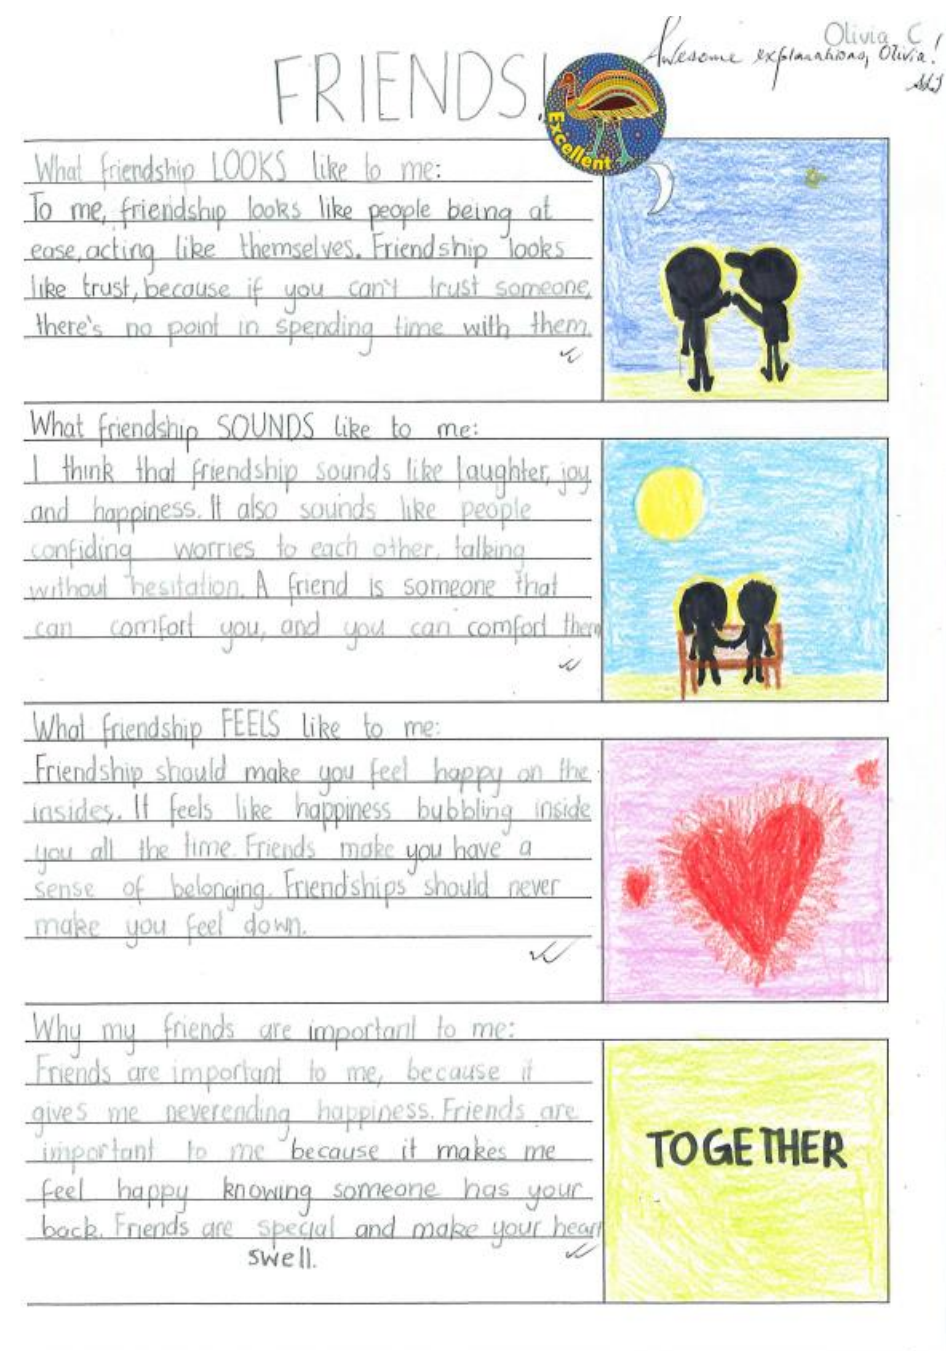 Olivia C
Awesome explanations, Olivia!
FRIENDS!
Excellent
What friendship LOOKS like to me:
To me, friendship looks like people being at
ease, acting like themselves. Friendship looks
like trust, because if you can't trust someone,
there's no point in spending time with them.
What friendship SOUNDS like to me:
I think that friendship sounds like laughter, joy
and happiness. It also sounds like people
confiding worries to each other, talking
without hesitation. A friend is someone that
can comfort you, and you can comfort them
What friendship FEELS like to me:
Friendship should make you feel happy on the
insides. It feels like happiness bubbling inside
you all the time. Friends make you have a
sense of belonging. Friendships should never
make you feel down.
Why my friends are important to me:
Friends are important to me, because it
gives me neverending happiness. Friends are
important to me because it makes me
feel happy knowing someone has your
back. Friends are special and make your heart
swell.
TOGETHER